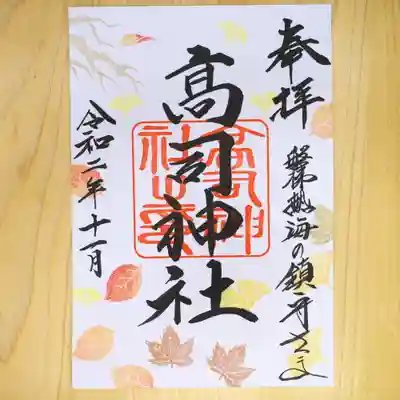 奉拝
磐梯熱海の鎮守さま
高司神社
令和二年十一月